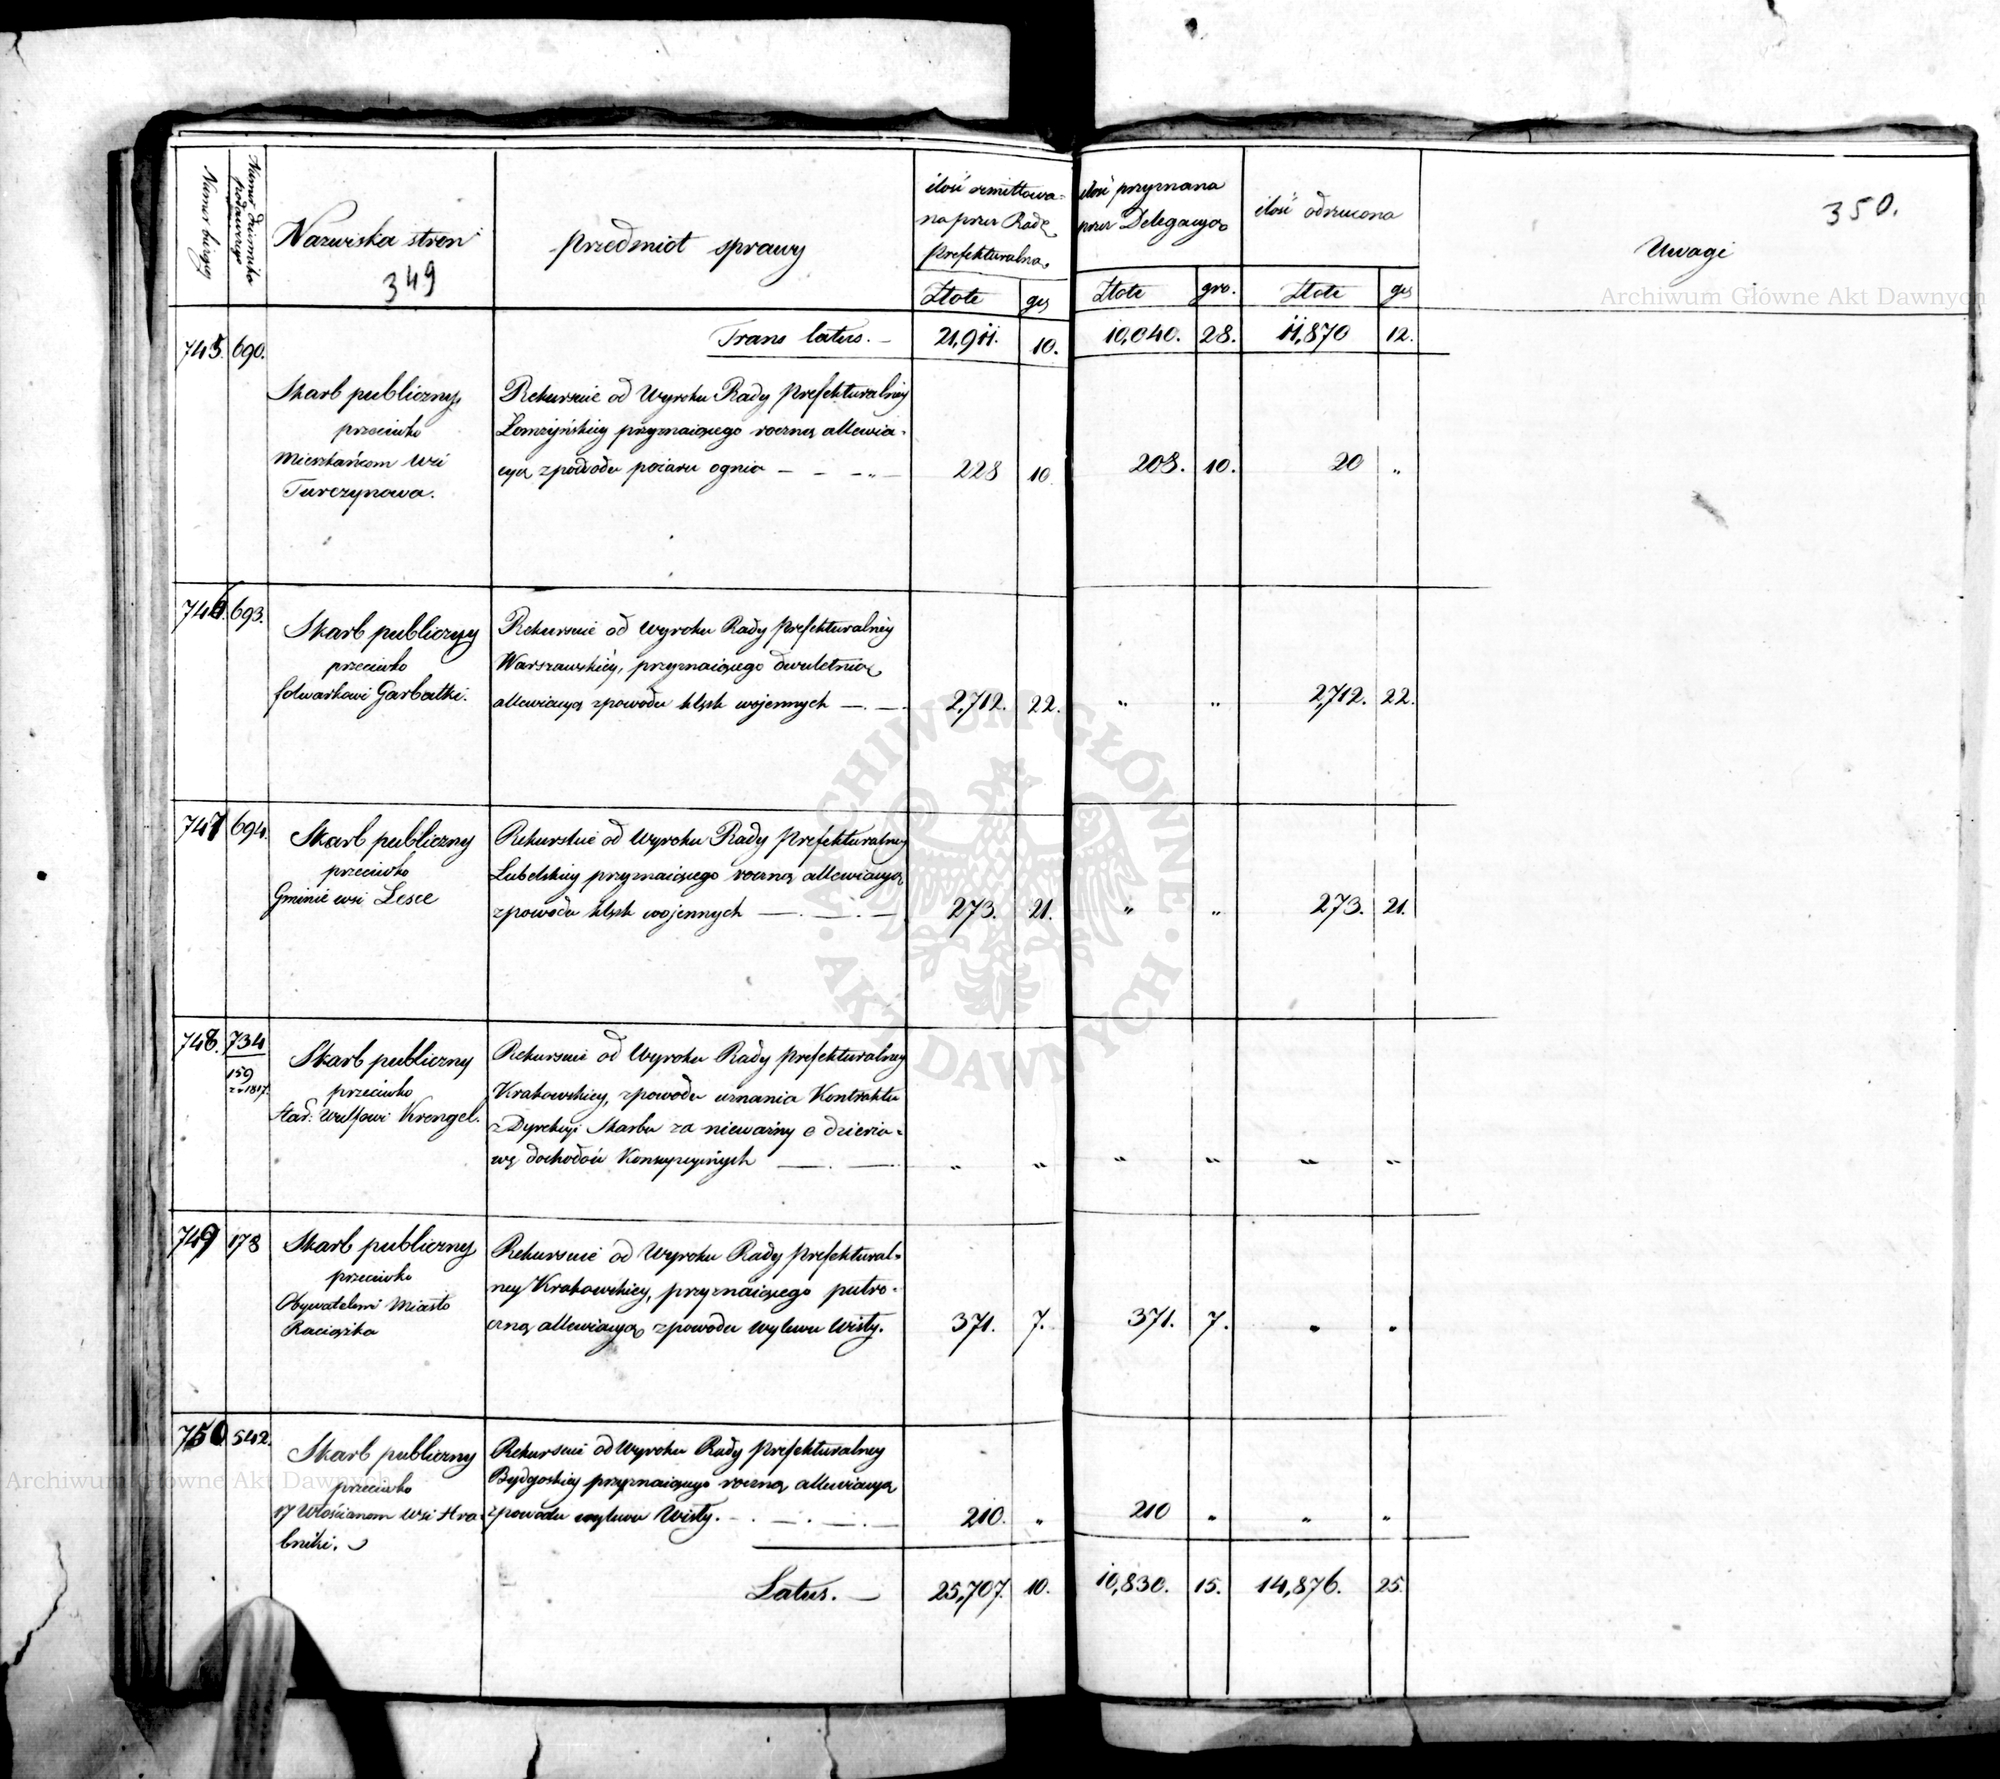 Numer bieżący
Numer Dziennika podawczego
Nazwiska stron
349
Przedmiot sprawy
ilość remittowa-
na przez Radę
Prefekturalną
Złote gr
ilość przyznana
przez Delegacyą
Złote gro.
ilość odrzucona
Złote gr
350.
Uwagi
Archiwum Główne Akt Dawnych
745. 690.
Trans latus. — 21,911. 10. 10,040. 28. 11,870 12.
Skarb publiczny
przeciwko
Mieszkańcom wsi
Turczynowa.
Rekursuie od Wyroku Rady Prefekturalney
Łomżyńskiey przyznaiącego roczną allewia-
cyą z powodu pożaru ognia — — — „ — 228 10 208. 10. 20 „
746. 693.
Skarb publiczny
przeciwko
folwarkowi Garbatki.
Rekursuie od Wyroku Rady Prefekturalney
Warszawskiey, przyznaiącego dwuletnią
allewiacyą z powodu klęsk wojennych —.—. 2,712. 22. „ „ 2,712. 22.
747 694.
Skarb publiczny
przeciwko
Gminie wsi Lesce
Rekursuie od Wyroku Rady Prefekturalney
Lubelskiey przyznaiącego roczną allewiacyą
z powodu klęsk wojennych —.—.— 273. 21. „ „ 273. 21.
748. 734
159
z r 1817.
Skarb publiczny
przeciwko
Star: Wulfowi Krengel.
Rekursuie od Wyroku Rady Prefekturalney
Krakowskiey, z powodu uznania Kontraktu
z Dyrekcyi Skarbu za nieważny o dzierża-
wę dochodów Konsumpcyinych —.— „ „ „ „ „ „
749 178
Skarb publiczny
przeciwko
Obywatelowi Miasta
Raciążka
Rekursuie od Wyroku Rady Prefektural-
ney Krakowskiey, przyznaiącego pułro-
czną allewiacyą z powodu wylewu Wisły. 371. 7. 371. 7. „ „
750. 542.
Skarb publiczny
przeciwko
17 Włościanom wsi Hra-
bniki.
Rekursuie od Wyroku Rady Prefekturalney
Bydgoskiey przyznaiącego roczną allewiacyą
z powodu wylewu Wisły. —.—.— 210. „ 210 „ „ „
Latus. — 25,707. 10. 10,830. 15. 14,876. 25.
Archiwum Główne Akt Dawnych
ARCHIWUM GŁÓWNE · AKT DAWNYCH ·